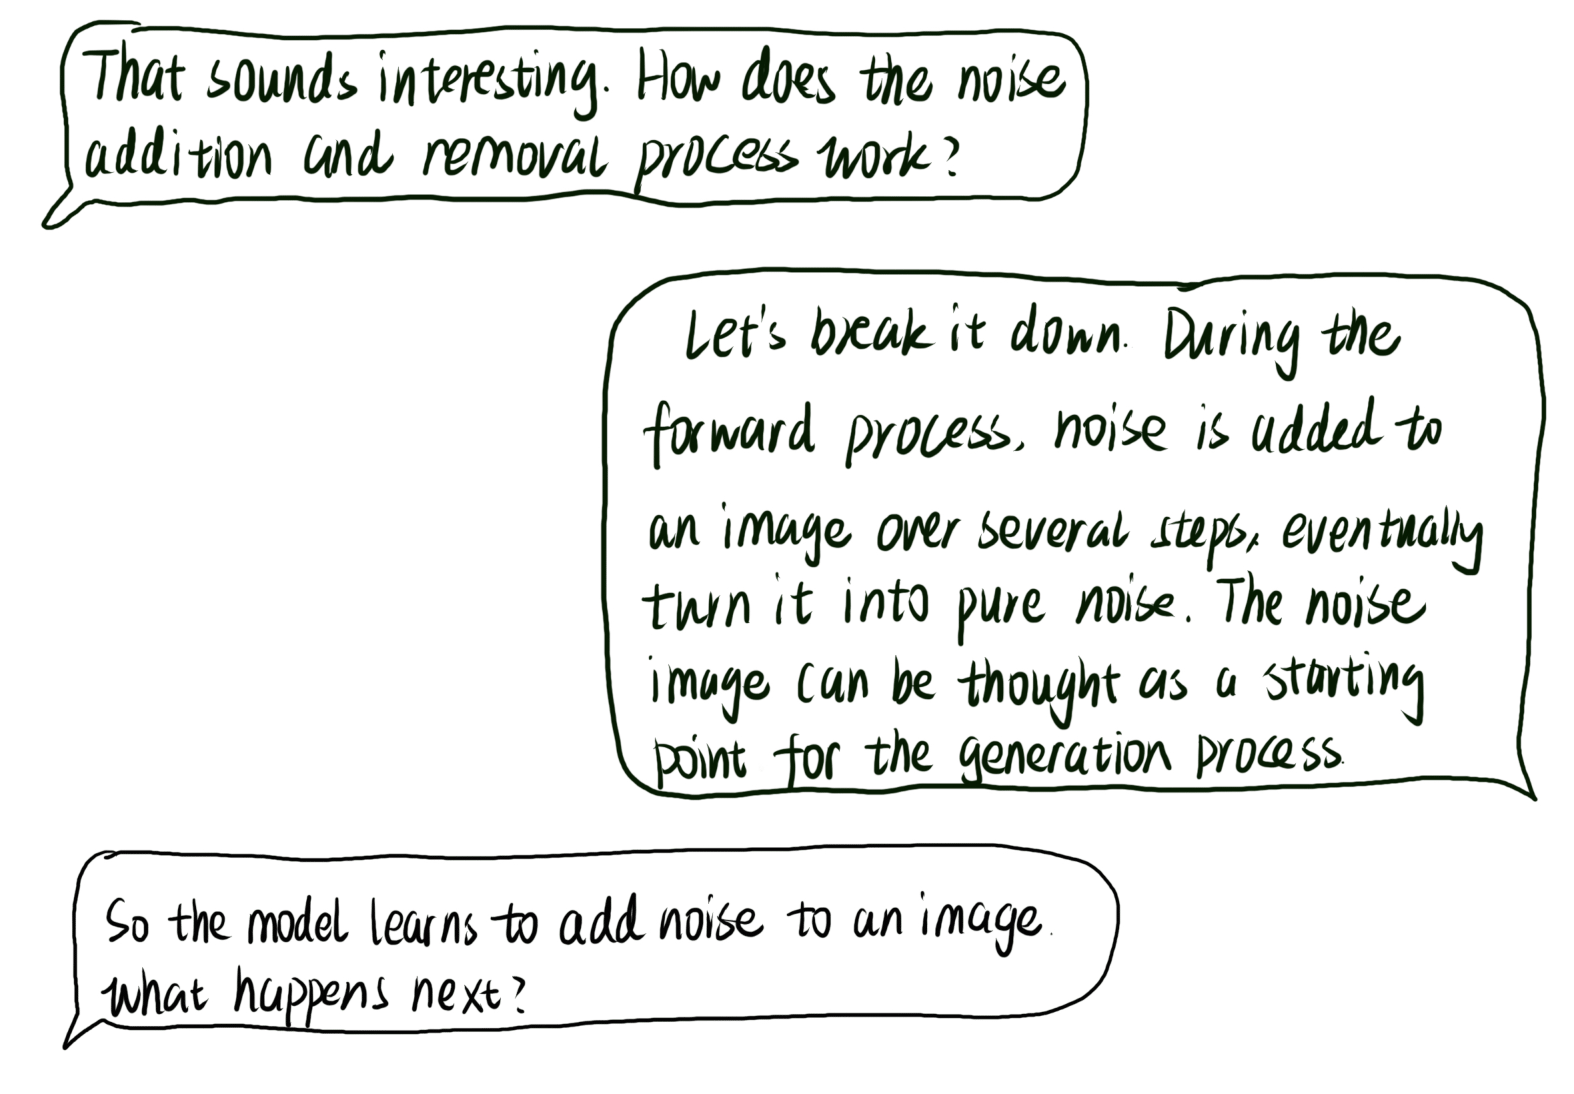 That sounds interesting. How does the noise
addition and removal process work?
Let's break it down. During the
forward process, noise is added to
an image over several steps, eventually
turn it into pure noise. The noise
image can be thought as a starting
point for the generation process.
So the model learns to add noise to an image.
what happens next?